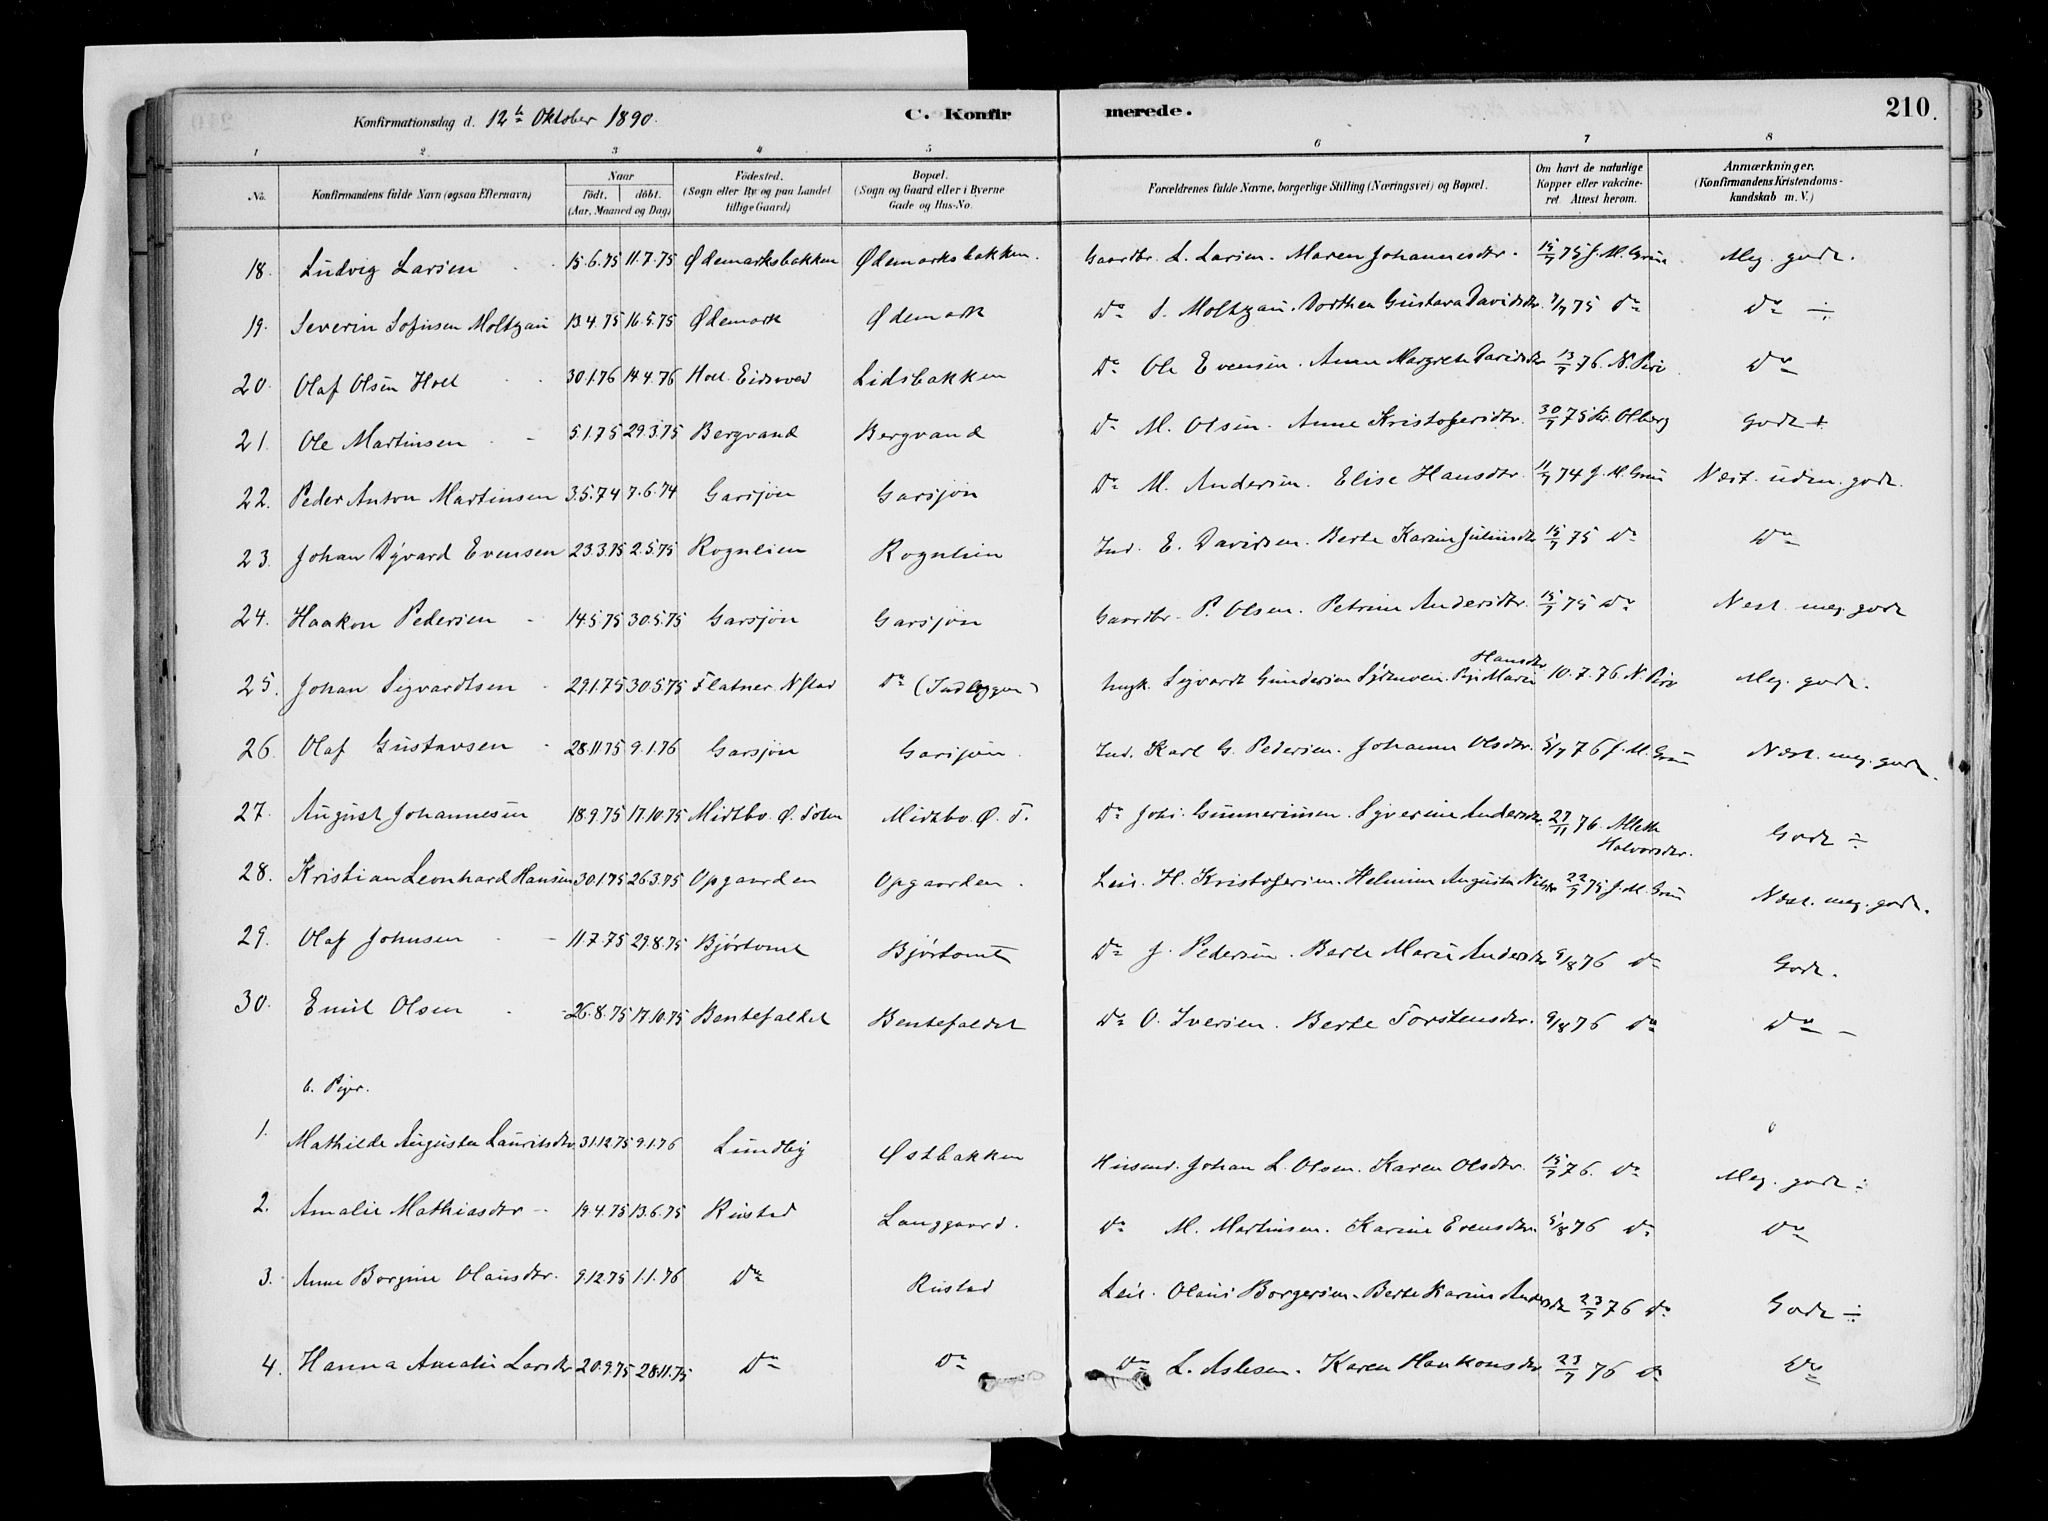 Konfirmationsdag d. 12te Oktober 1890. C. Konfir merede. 210.
1 2 3 4 5 6 7 8
No. Konfirmandens fulde Navn (ogsaa Efternavn) Naar født. døbt. (Aar, Maaned og Dag) Fødested. (Sogn eller By og paa Landet tillige Gaard) Bopæl. (Sogn og Gaard eller i Byerne Gade og Hus-No. Forældrenes fulde Navne, borgerlige Stilling (Næringsvei) og Bopæl. Om havt de naturlige Kopper eller vakcineret Attest herom. Anmærkninger, (Konfirmandens Kristendomskundskab m. V.)
18. Ludvig Larsen 15.6.75 11.7.75 Ødemarksbakken Ødemarksbakken. Gaardbr. L. Larsen. Maren Johannesdtr. 15/7 75 J. M. Grue Meg. godt.
19. Severin Sofusen Moltzau 13.4.75 16.5.75 Ødemark Ødemark Do S. Moltzau. Dorthea Gustava Davidsdtr. 7/7 75 Do Do ÷
20. Olaf Olsen Holl 30.1.76 14.4.76 Holl. Eidsvold Lidsbakken Do Ole Evensen. Anne Margrete Davidsdtr 13/7 76. N. Piro Do
21. Ole Martinsen 5.1.75 29.3.75 Bergvand Bergvand Do M. Olsen. Anne Kristofersdtr. 30/7 75 Kr. Olberg godt +
22. Peder Anton Martinsen 3.5.74 7.6.74 Garsjøn Garsjøn Do M. Andersen. Elise Hansdtr. 11/7 74 J. M. Grue Næst. uden. godt.
23. Johan Dyvard Evensen 23.3.75 2.5.75 Rognlien Rognlien Ind. E. Davidsen. Berte Karine Juliusdtr 15/7 75 Do Do
24. Haakon Pedersen 14.5.75 30.5.75 Garsjøn Garsjøn Gaardbr. P. Olsen. Petrine Andersdtr. 15/7 75 Do Næst. meg. godt
25. Johan Sigvardtsen 29.1.75 30.5.75 Flatner. N Stad Do (Indlyggen) Ungk. Sigvardt Gundersen Pige Marie Hansdtr 10.7.76 N. Piro Meg. godt.
26. Olaf Gustavsen 28.11.75 9.1.76 Garsjøn Garsjøn. Ind. Karl G. Pedersen. Johanne Olsdtr. 5/7 76 J. M. Grue Næst. meg. godt.
27. August Johannesen 18.9.75 17.10.75 Midtbo. Ø. Toten Midtbo Ø. T. Do Johs. Gunnerinsen. Syverine Andersdtr. 27/11 76. Mette Halvorsdtr. Godt ÷
28. Kristian Leonhard Hansen 30.1.75 26.3.75 Opgaarden Opgaarden. Leil. H. Kristofersen. Helmine Augusta Nilsdtr 22/7 75 J. M. Grue Næst. meg. godt.
29. Olaf Johnsen 11.7.75 29.8.75 Bjørtomt Bjørtomt Do J. Pedersen. Berte Marie Andersdtr 9/8 76 Do Godt.
30. Emil Olsen 26.8.75 17.10.75 Bentefaldet Bentefaldet Do O. Iversen. Berte Torstensdtr. 9/8 76 Do Do -
b. Piger.
1. Mathilde Augusta Lauritsdtr 31.12.75 9.1.76 Lundby Østbakken Husmd. Johan L. Olsen. Karen Olsdtr. 15/7 76. Do Meg. godt ÷
2. Amalie Mathiasdtr 19.4.75 13.6.75 Rustad Langgaard. Do M. Martinsen. Karine Evensdtr. 5/8 76 Do Do
3. Anne Borgine Olausdtr. 9.12.75 1.1.76 Do Rustad Leil. Olaus Borgersen. Berte Karine Andersdtr 23/7 76 Do Godt ÷
4. Hanna Amalie Larsdtr 20.9.75 28.11.75 Do Do Do L. Aslesen. Karen Haakonsdtr 23/7 76 Do Do